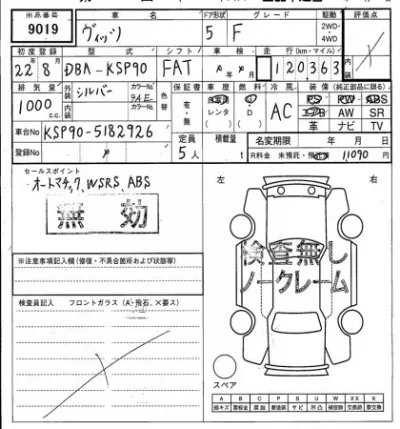 出品番号 車名 ドア形状 グレード 駆動 評価点
9019 ヴィッツ 5 F 2WD 4WD
初度登録 型式 シフト 車検 走行(km・マイル) 内装
22年8月 DBA-KSP90 FAT 年 月 120363
排気量 外装 シルバー カラーNo 9AE 色替 保証書 車歴 燃料 冷房 装備(純正部品に限る)
1000 c.c. 内装 カラーNo 有・無 レンタ D AC PS PW ABS
AW SR
革 ナビ TV
車台No KSP90-5182926 定員 積載量 名変期限 年 月 日
登録No 5人 t R料金 未預託・預託金 11090 円
セールスポイント
オートマチック, WSRS, ABS
無効
左 右
検査無し
ノークレーム
※注意事項記入欄(修復・不具合箇所および状態等)
検査員記入 フロントガラス(A・飛石、×要ス)
スペア
A B C P S U W X XX
線キズ 腐食 要塗装 サビ 凹凸 要交換